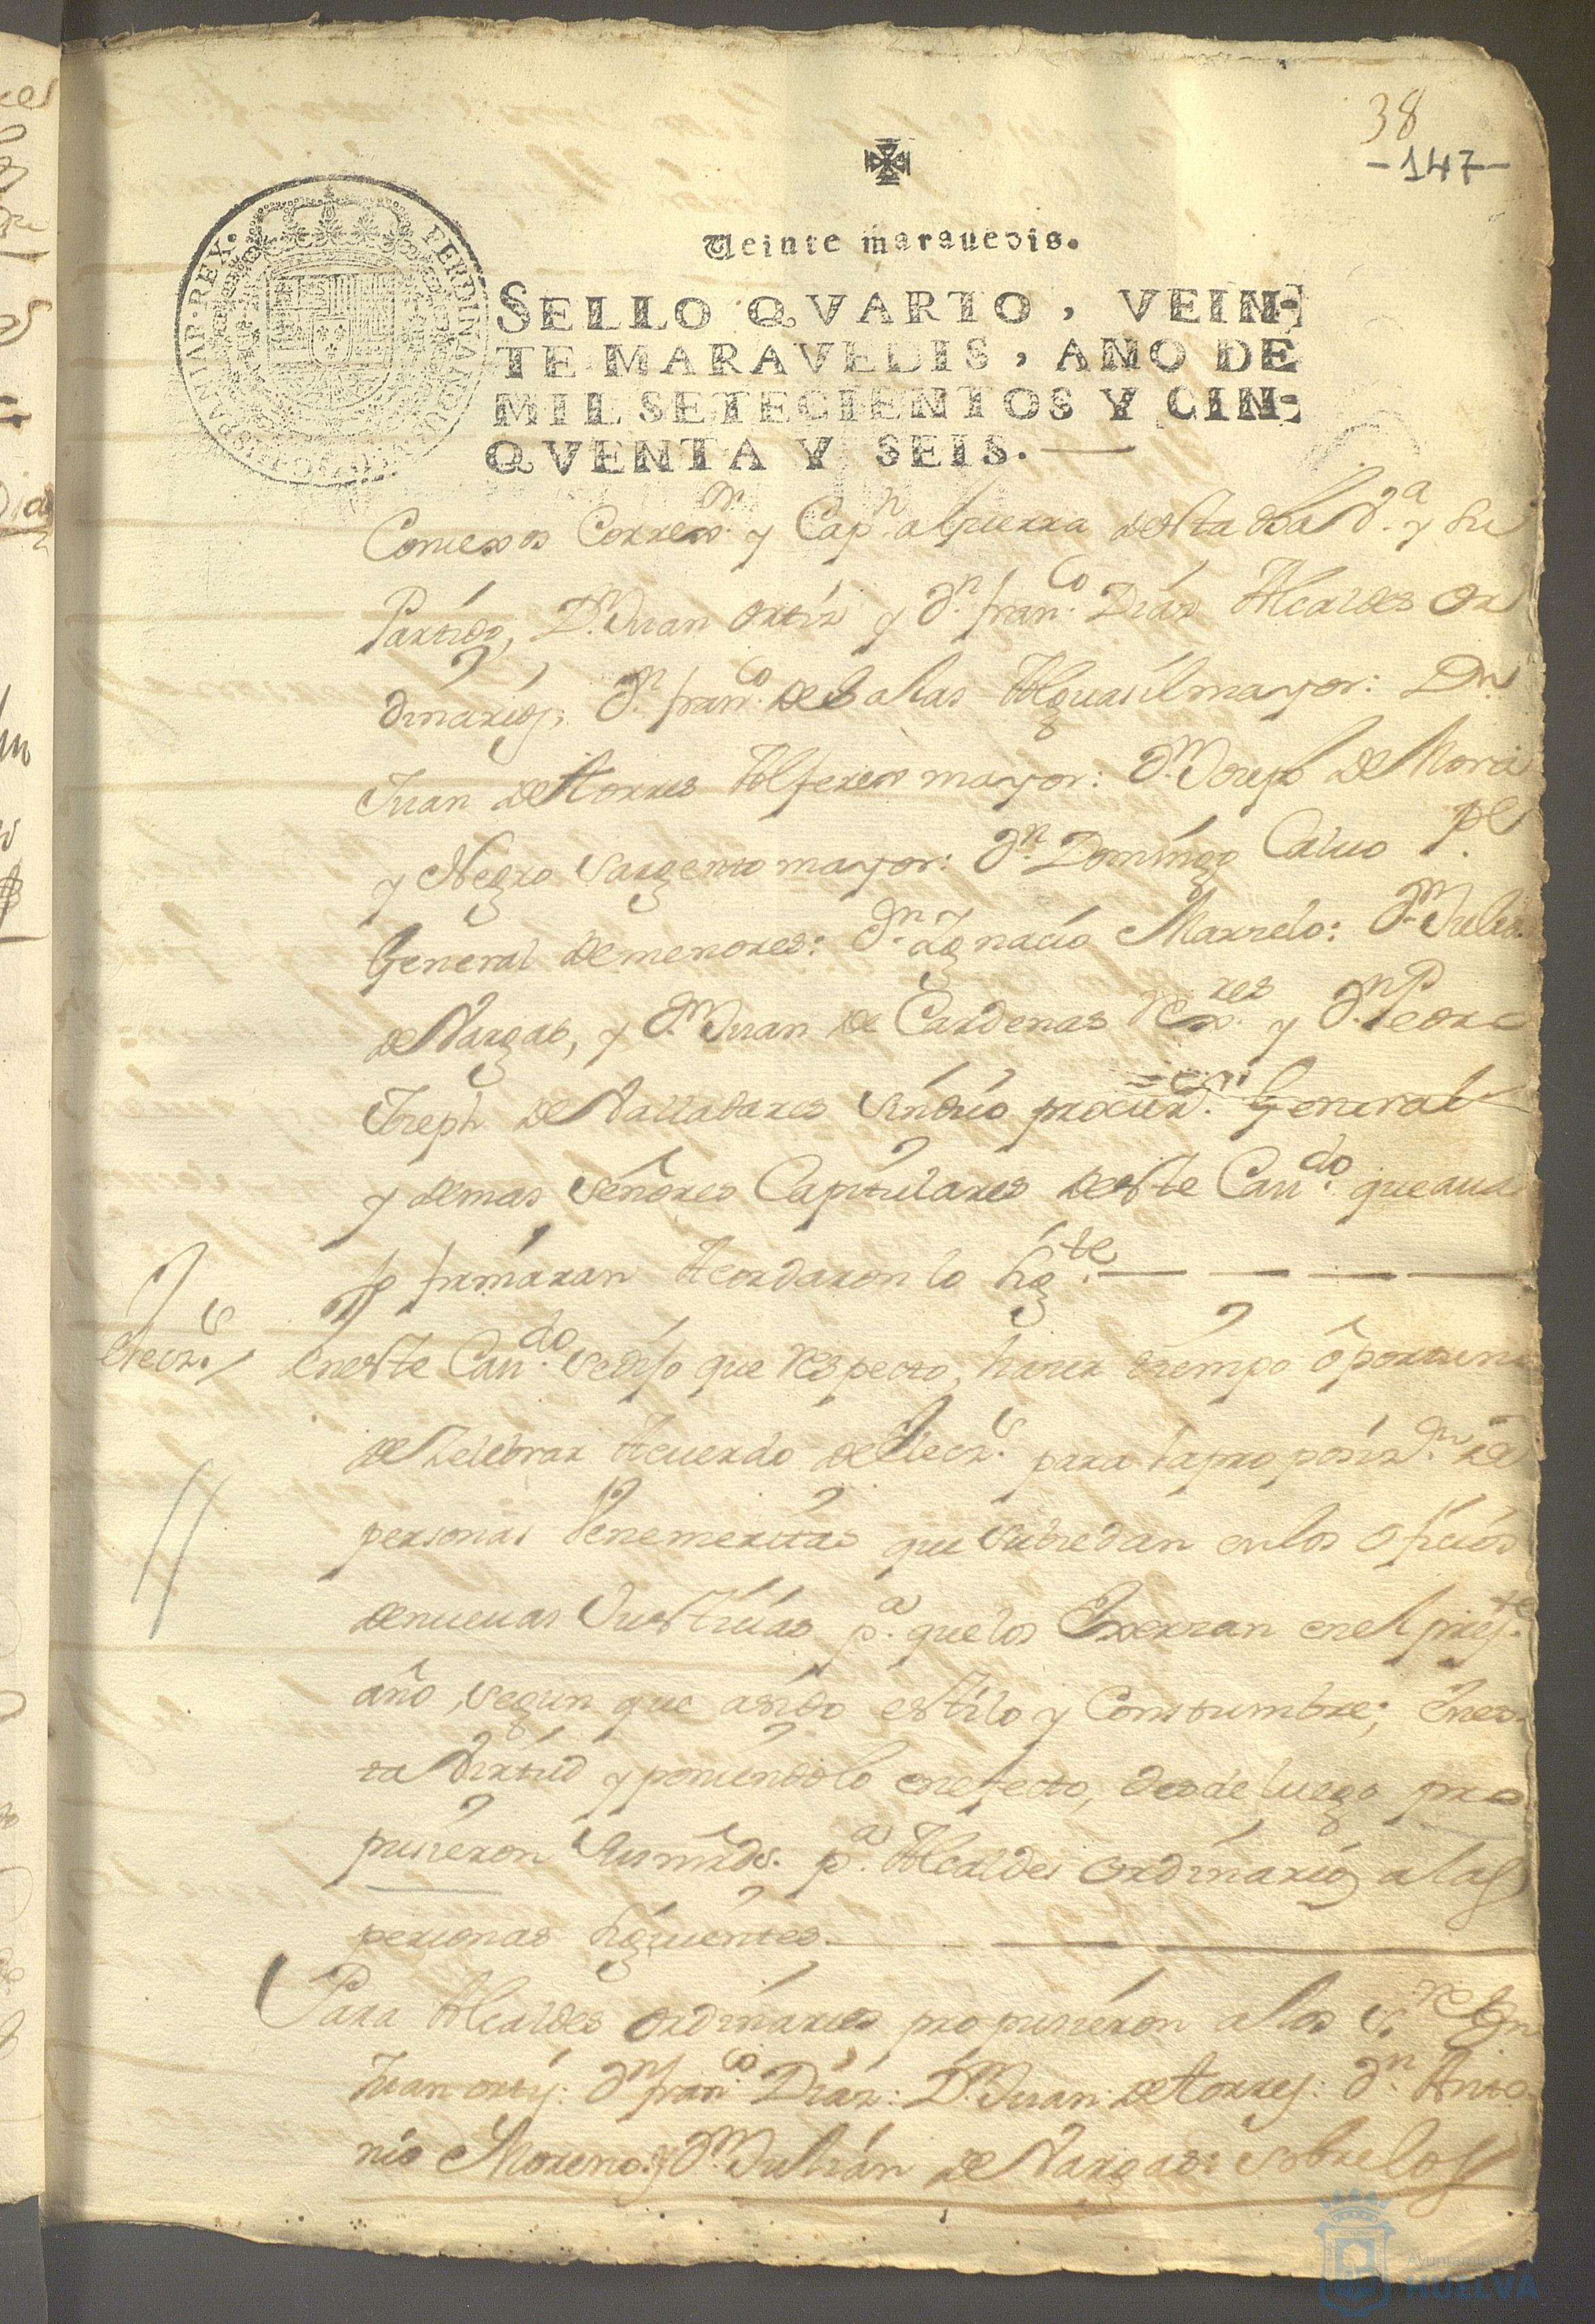 38
-147-
Veinte maravedis.
SELLO QVARTO, VEIN-
TE MARAVEDIS, AÑO DE
MIL SETECIENTOS Y CIN-
QVENTA Y SEIS.
HISPANIAR·REX·
Correxor. y Cap.n a Guerra desta d.ha V.a y su
Partido, D.n Juan Ortiz y d.n fran.co Diaz Alcaldes or
dinarios, d.n fran.co de Salas Alguasil mayor: D.n
Juan de Torres Alferes mayor: d.n Joseph de Mora
y Negro Sargento mayor: d.n Domingo Calvo P.e
General de menores: d.n Ignacio Marrelo: d.n Julian
de Vargas, y d.n Juan de Cardenas Rex.res y d.n Pedro
Joseph de Valladares Sindico procur.or General
y demas Señores Capitulares deste Cau.do que aua
jo firmáran Acordaron lo sig.te
Elecz.n
En este Cau.do se dijo que respecto, hauer tiempo oportuno
de Zelebrar Acuerdo de Elecz.n para la proposiz.n de
personas Venemeritas que subzedan en los ofiçios
de nuevas Justicias p.a que los Exerzan en el pres.te
año, segun que asido estilo y Constumbre; En es-
ta Virtud y poniendolo en efecto, desde luego pro
pusieron sus mrds. p.a Alcaldes ordinarios a las
personas siguientes.
Para Alcaldes ordinarios propusieron a los S.res D.n
Juan ortiz: d.n fran.co Diaz: D.n Juan de torres: d.n Anto-
nio Moreno y d.n Julián de Vargas: sobre los
Ayuntamiento
HUELVA